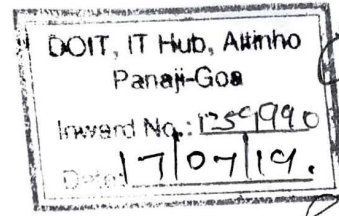 DOIT, IT Hub, Altinho
Panaji-Goa
Inward No.: 1259990
Date: 17/07/19.